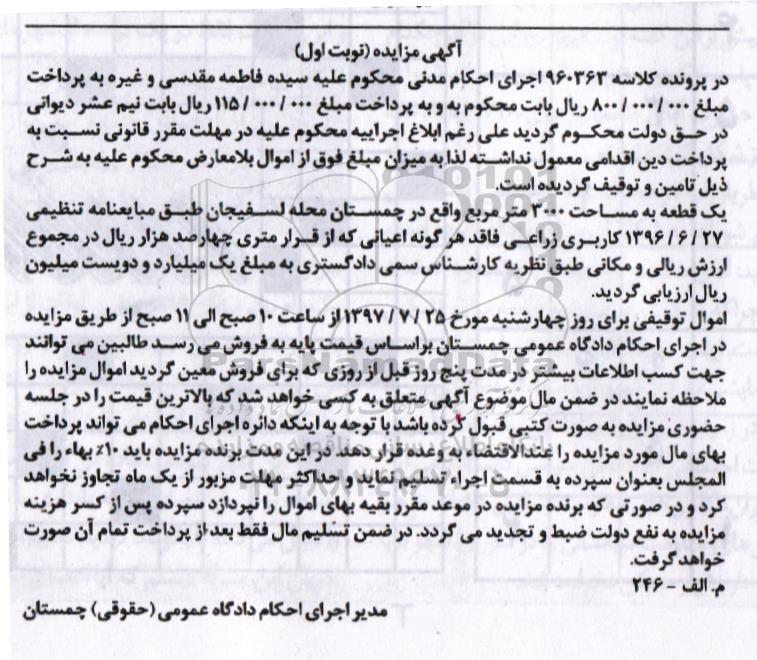 آگهی مزایده (نوبت اول)
در پرونده کلاسه ۹۶۰۳۶۳ اجرای احکام مدنی محکوم علیه سیده فاطمه مقدسی و غیره به پرداخت
مبلغ ۸۰۰/۰۰۰/۰۰۰ ریال بابت محکوم به و به پرداخت مبلغ ۱۱۵/۰۰۰/۰۰۰ ریال بابت نیم عشر دیوانی
در حق دولت محکوم گردید علی رغم ابلاغ اجراییه محکوم علیه در مهلت مقرر قانونی نسبت به
پرداخت دین اقدامی معمول نداشته لذا به میزان مبلغ فوق از اموال بلامعارض محکوم علیه به شرح
ذیل تامین و توقیف گردیده است.
یک قطعه به مساحت ۳۰۰۰ متر مربع واقع در چمستان محله لسفیجان طبق مبایعنامه تنظیمی
۱۳۹۶/۶/۲۷ کاربری زراعی فاقد هر گونه اعیانی که از قرار متری چهارصد هزار ریال در مجموع
ارزش ریالی و مکانی طبق نظریه کارشناس سمی دادگستری به مبلغ یک میلیارد و دویست میلیون
ریال ارزیابی گردید.
اموال توقیفی برای روز چهارشنبه مورخ ۱۳۹۷/۷/۲۵ از ساعت ۱۰ صبح الی ۱۱ صبح از طریق مزایده
در اجرای احکام دادگاه عمومی چمستان براساس قیمت پایه به فروش می رسد طالبین می توانند
جهت کسب اطلاعات بیشتر در مدت پنج روز قبل از روزی که برای فروش معین گردید اموال مزایده را
ملاحظه نمایند در ضمن مال موضوع آگهی متعلق به کسی خواهد شد که بالاترین قیمت را در جلسه
حضوری مزایده به صورت کتبی قبول کرده باشد با توجه به اینکه دائره اجرای احکام می تواند پرداخت
بهای مال مورد مزایده را عندالاقتضاء به وعده قرار دهد. در این مدت برنده مزایده باید ۱۰٪ بهاء را فی
المجلس بعنوان سپرده به قسمت اجراء تسلیم نماید و حداکثر مهلت مزبور از یک ماه تجاوز نخواهد
کرد و در صورتی که برنده مزایده در موعد مقرر بقیه بهای اموال را نپردازد سپرده پس از کسر هزینه
مزایده به نفع دولت ضبط و تجدید می گردد. در ضمن تسلیم مال فقط بعد از پرداخت تمام آن صورت
خواهد گرفت.
م. الف - ۲۴۶
مدیر اجرای احکام دادگاه عمومی (حقوقی) چمستان
ParsNamadData